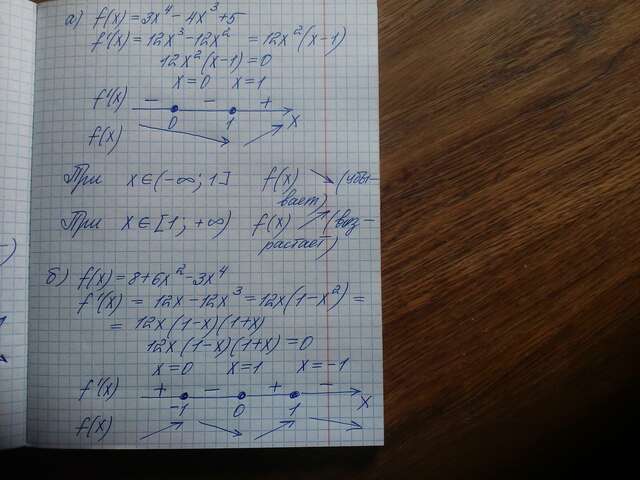 а) f(x) = 3x⁴ - 4x³ + 5
f'(x) = 12x³ - 12x² = 12x²(x-1)
12x²(x-1) = 0
x=0 x=1
f'(x) - - +
0 1 x
f(x)
При x∈(-∞; 1] f(x) ↘ (убы-
вает)
При x∈[1; +∞) f(x) ↗ (воз-
растает)
б) f(x) = 8+6x² - 3x⁴
f'(x) = 12x - 12x³ = 12x(1-x²) =
= 12x(1-x)(1+x)
12x(1-x)(1+x) = 0
x=0 x=1 x=-1
f'(x) + - + -
-1 0 1 x
f(x)